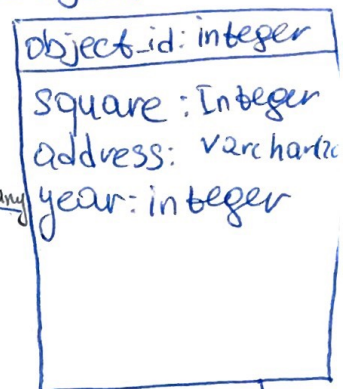 object_id: integer
square : Integer
address: varchar(20
any
year: integer